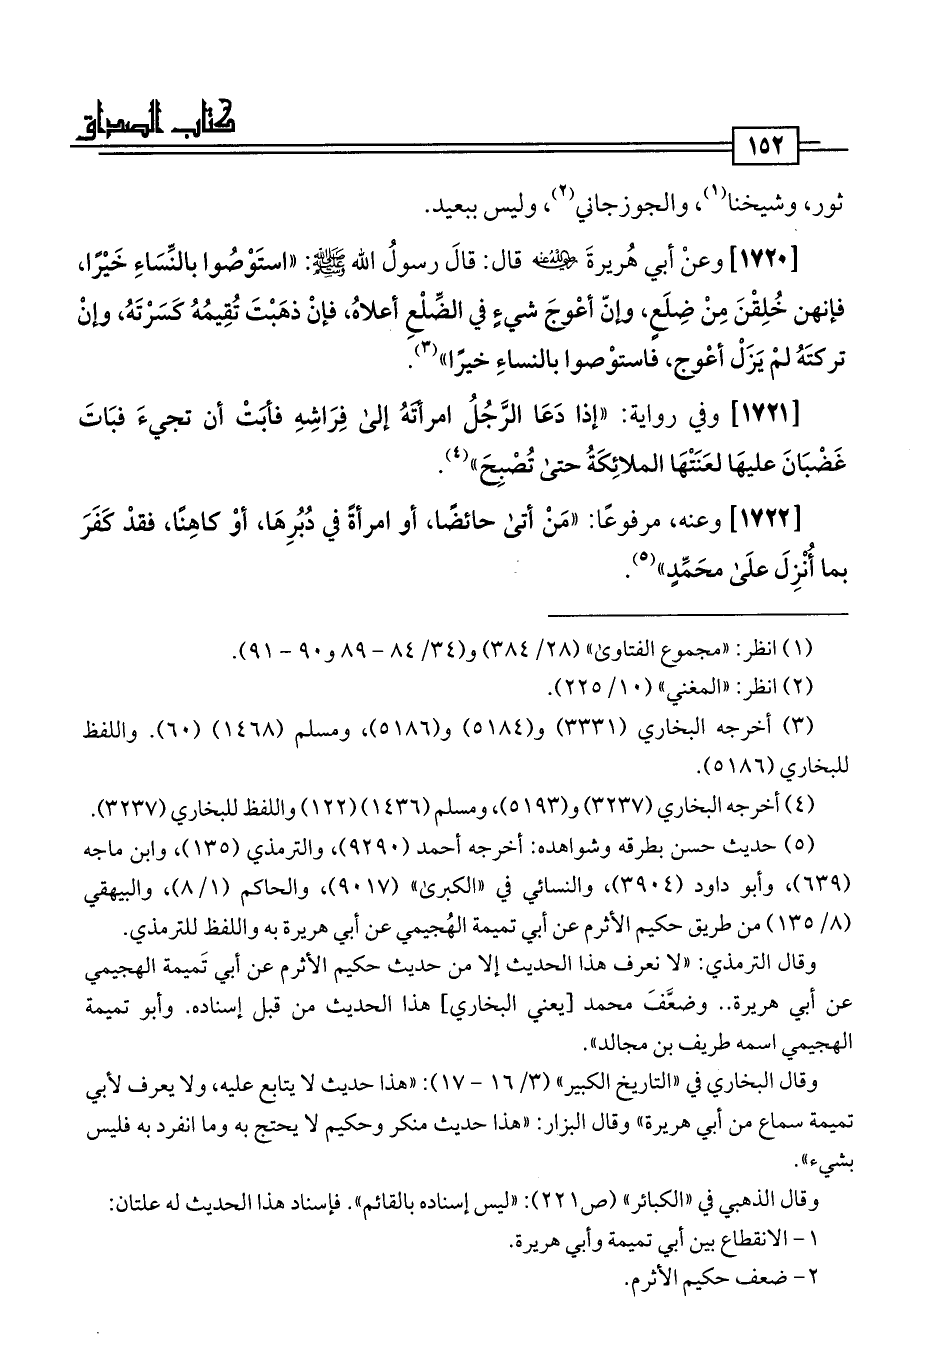 كتاب الصداق
١٥٢
ثور، وشيخنا(١)، والجوزجاني(٢)، وليس ببعيد.
[١٧٢٠] وعنْ أبي هُريرةَ رضي الله عنه قال: قالَ رسولُ الله ﷺ: «استَوْصُوا بالنِّسَاءِ خَيْرًا،
فإنهن خُلِقْنَ مِنْ ضِلَعٍ، وإنّ أعْوجَ شيءٍ في الضِّلْعِ أعلاهُ، فإنْ ذهَبْتَ تُقِيمُهُ كَسَرْتَهُ، وإنْ
تركتَهُ لمْ يَزَلْ أعْوج، فاستوْصوا بالنساءِ خيرًا»(٣).
[١٧٢١] وفي رواية: «إذا دَعَا الرَّجُلُ امرأتَهُ إلىٰ فِرَاشِهِ فأبَتْ أن تجيءَ فبَاتَ
غَضْبَانَ عليهَا لعَنَتْهَا الملائِكَةُ حتىٰ تُصْبِحَ»(٤).
[١٧٢٢] وعنه، مرفوعًا: «مَنْ أتىٰ حائضًا، أو امرأةً في دُبُرِهَا، أوْ كاهِنًا، فقدْ كَفَرَ
بما أُنْزِلَ علَىٰ محَمَّدٍ»(٥).
(١) انظر: «مجموع الفتاوىٰ» (٢٨/ ٣٨٤) و(٣٤/ ٨٤ - ٨٩ و٩٠ - ٩١).
(٢) انظر: «المغني» (١٠/ ٢٢٥).
(٣) أخرجه البخاري (٣٣٣١) و(٥١٨٤) و(٥١٨٦)، ومسلم (١٤٦٨) (٦٠). واللفظ
للبخاري (٥١٨٦).
(٤) أخرجه البخاري (٣٢٣٧) و(٥١٩٣)، ومسلم (١٤٣٦) (١٢٢) واللفظ للبخاري (٣٢٣٧).
(٥) حديث حسن بطرقه وشواهده: أخرجه أحمد (٩٢٩٠)، والترمذي (١٣٥)، وابن ماجه
(٦٣٩)، وأبو داود (٣٩٠٤)، والنسائي في «الكبرىٰ» (٩٠١٧)، والحاكم (١/ ٨)، والبيهقي
(٨/ ١٣٥) من طريق حكيم الأثرم عن أبي تميمة الهُجيمي عن أبي هريرة به واللفظ للترمذي.
وقال الترمذي: «لا نعرف هذا الحديث إلا من حديث حكيم الأثرم عن أبي تَميمة الهجيمي
عن أبي هريرة.. وضعَّفَ محمد [يعني البخاري] هذا الحديث من قبل إسناده. وأبو تميمة
الهجيمي اسمه طريف بن مجالد».
وقال البخاري في «التاريخ الكبير» (٣/ ١٦ - ١٧): «هذا حديث لا يتابع عليه، ولا يعرف لأبي
تميمة سماع من أبي هريرة» وقال البزار: «هذا حديث منكر وحكيم لا يحتج به وما انفرد به فليس
بشيء».
وقال الذهبي في «الكبائر» (ص٢٢١): «ليس إسناده بالقائم». فإسناد هذا الحديث له علتان:
١- الانقطاع بين أبي تميمة وأبي هريرة.
٢- ضعف حكيم الأثرم.